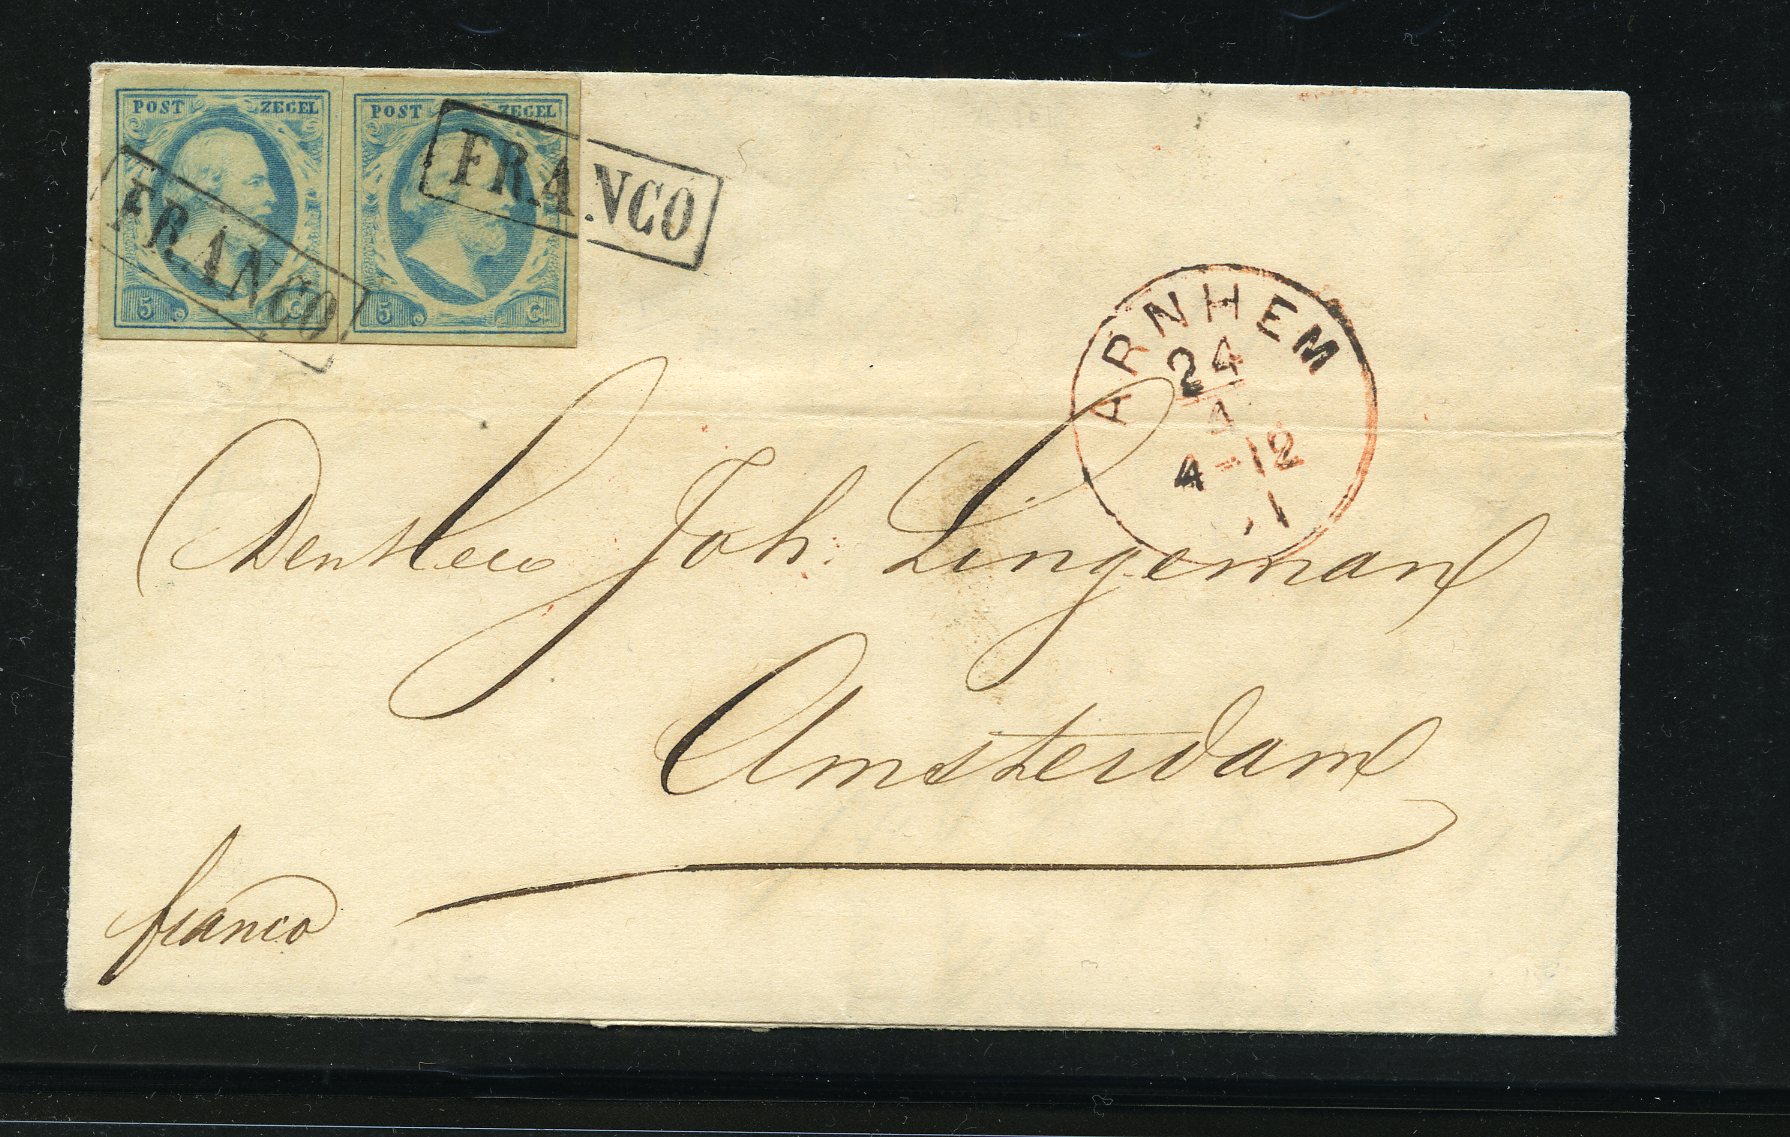 POST ZEGEL POST ZEGEL
FRANCO FRANCO
5 C. 5 C.
ARNHEM
24
4
4-12
1
Den Heer Joh. Lingeman
Amsterdam
franco